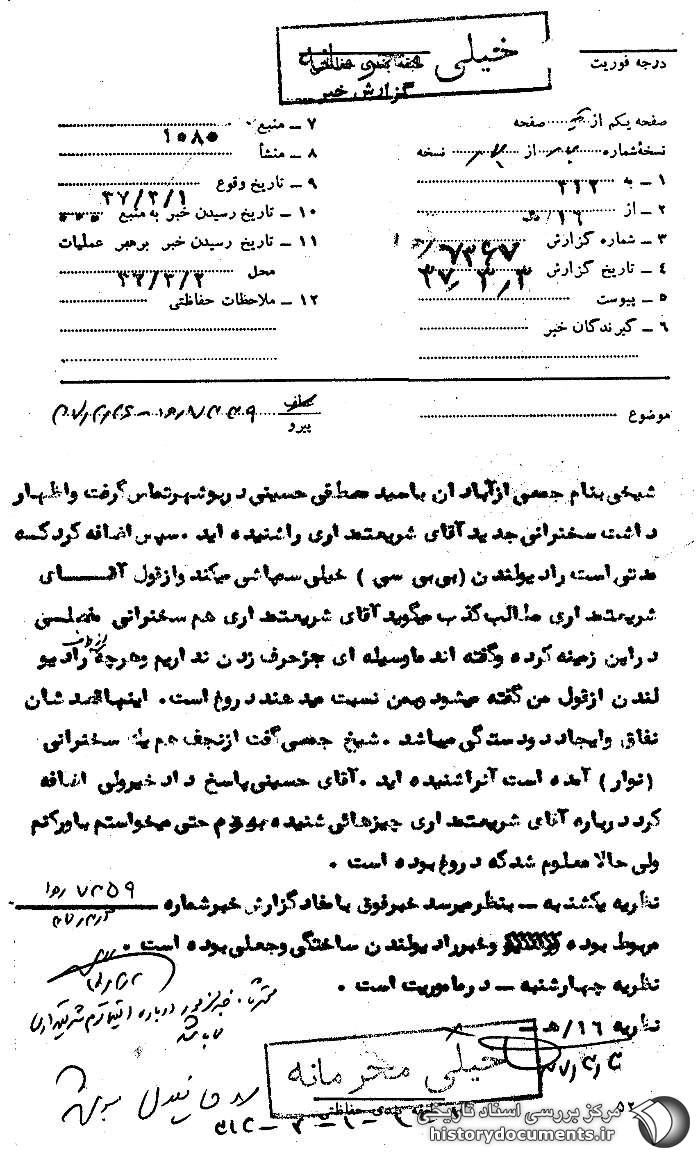 خیلی
طبقه بندی حفاظتی
گزارش خبر
درجه فوریت
صفحه یکم از صفحه
نسخه شماره از نسخه
۱ ــ به ۳۱۲
۲ ــ از ۱۶ / ه
۳ ــ شماره گزارش
۴ ــ تاریخ گزارش ۳۷٫۳٫۳
۵ ــ پیوست
۶ ــ گیرندگان خبر
۷ ــ منبع ۱۰۸۰
۸ ــ منشأ
۹ ــ تاریخ وقوع ۳۷/۳/۱
۱۰ ــ تاریخ رسیدن خبر به منبع
۱۱ ــ تاریخ رسیدن خبر برهبر عملیات
محل ۳۷/۳/۲
۱۲ ــ ملاحظات حفاظتی
موضوع
عطف
پیرو
شیخی بنام جمعی ازآبادان باحمید مصطفی حسینی دربوشهرتماس گرفت واظهار
داشت سخنرانی جدیدآقای شریعتمداری راشنیده اید . سپس اضافه کردکه
مدتی است رادیولندن (بی بی سی ) خیلی سمپاشی میکند وازقول آقـــای
شریعتمداری مطالب کذب میگوید آقای شریعتمداری هم سخنرانی مفصلی
دراین زمینه کرده وگفته اند ماوسیله ای جزحرف زدن نداریم وهرچه از طرف رادیو
لندن ازقول من گفته میشود وبمن نسبت میدهند دروغ است . اینهاقصدشان
نفاق وایجاد دودستگی میباشد . شیخ جمعی گفت ازنجف هم یک سخنرانی
(نوار) آمده است آنراشنیده اید . آقای حسینی پاسخ داد خیرولی اضافه
کرد درباره آقای شریعتمداری چیزهائی شنیده بودم حتی میخواستم باورکنم
ولی حالا معلوم شدکه دروغ بوده است .
نظریه یکشنبه ــ بنظرمیرسد خبرفوق بامفادگزارش خبرشماره
مربوط بوده وخبررادیولندن ساختگی وجعلی بوده است .
نظریه چهارشنبه ــ درماموریت است .
نظریه ۱۶/ه ــ
خیلی محرمانه
طبقه بندی حفاظتی
۵۲
مرکز بررسی اسناد تاریخی
historydocuments.ir